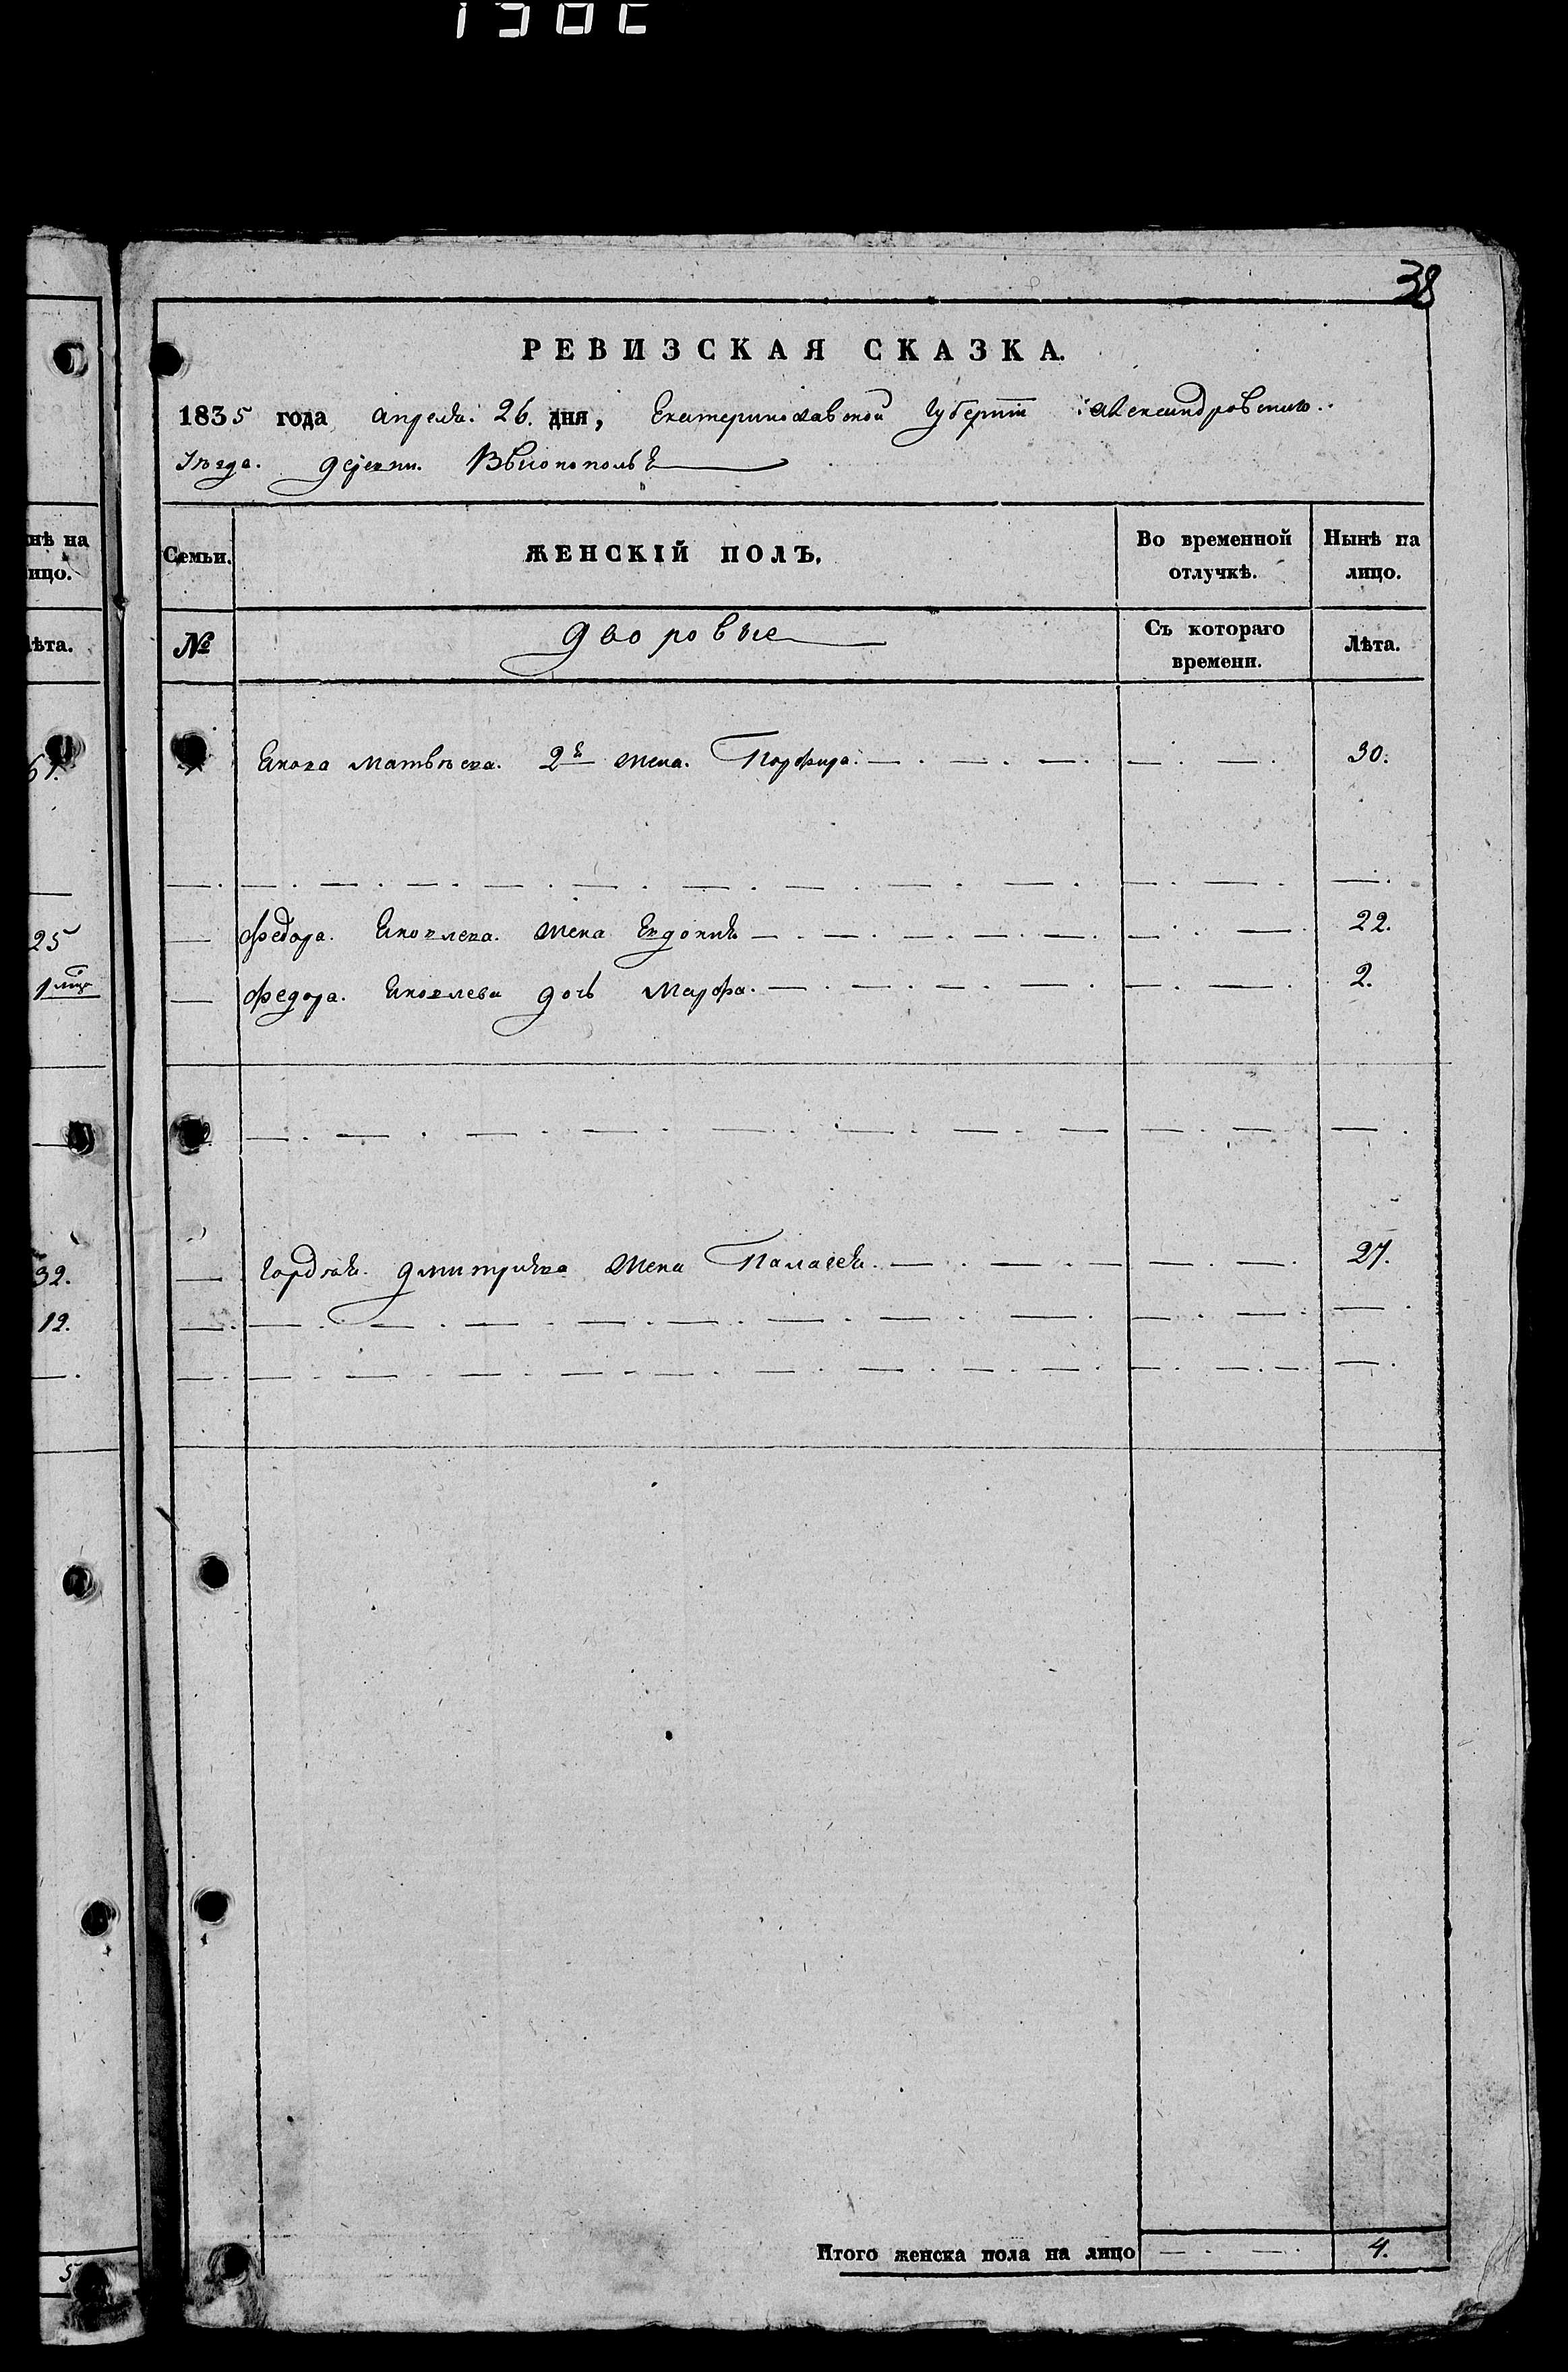 38
РЕВИЗСКАЯ СКАЗКА.
1835 года апреля 26. дня, Екатеринославской губернии Александровскаго
уезда. деревни. Высокополья
нѣ на
ицо.
Семьи.
ЖЕНСКІЙ ПОЛЪ.
Во временной
отлучкѣ.
Нынѣ на
лицо.
ѣта.
№
дворовые
Съ котораго
времени.
Лѣта.
Якова Матвѣева. 2я жена. Порфира. 30.
25
Федора. Яковлева. жена Евдокия 22.
1
Федора. Яковлева дочь Марфа. 2.
32.
Гордѣя. Дмитриева жена Палагея. 27.
12.
5
Итого женска пола на лицо 4.